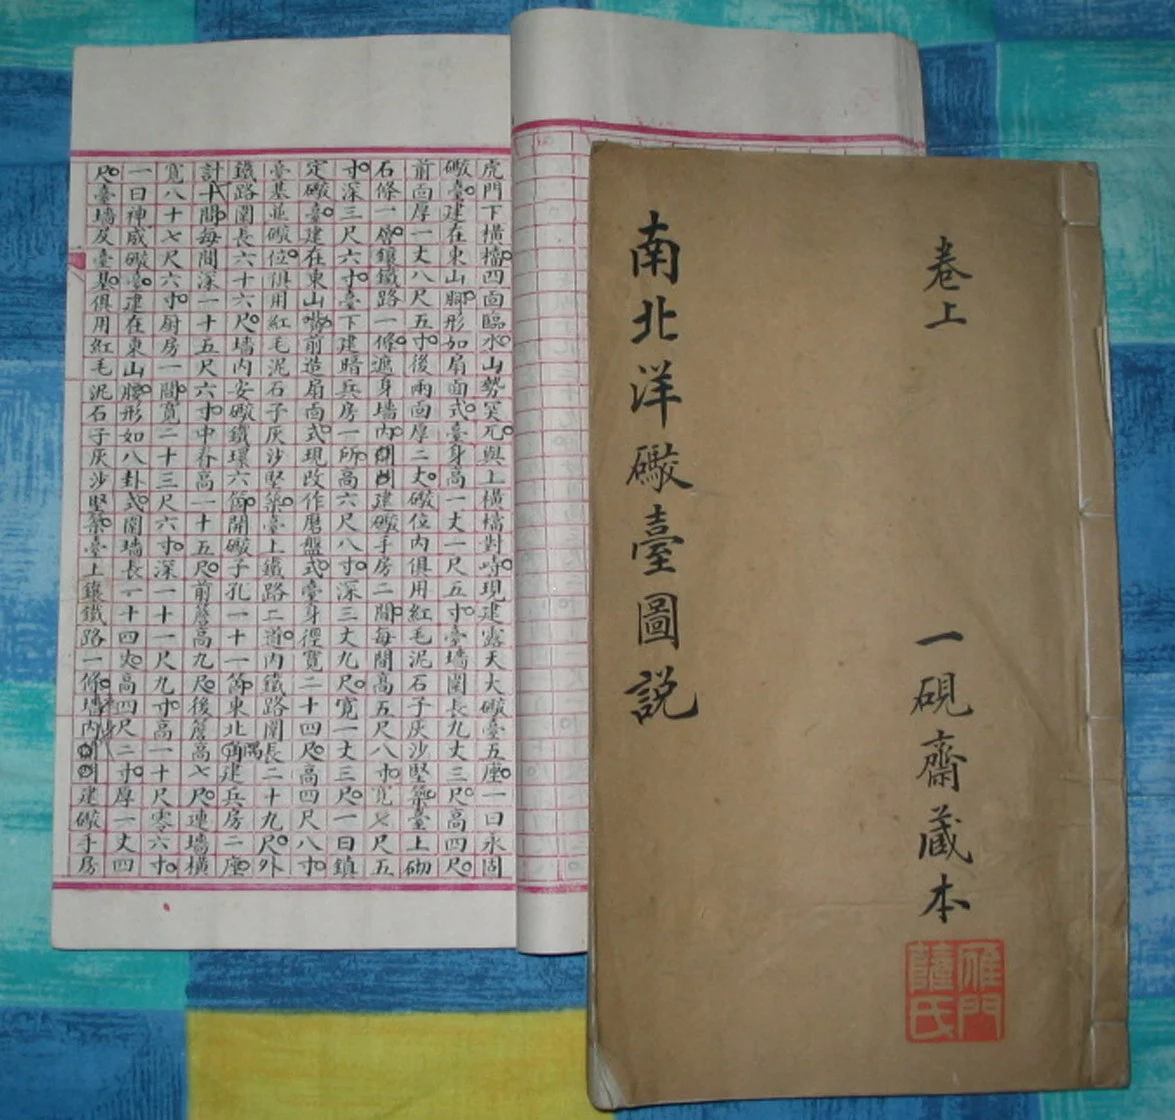 虎門下橫檔。四面臨水。山勢突兀。與上橫檔對峙。現建露天大礮臺五座。一曰永固
礮臺。建在東山腳。形如扇面式。臺身高一丈一尺五寸。臺墻圍長九丈三尺。高四尺。
前面厚一丈八尺五寸。後兩面厚二丈。礮位內俱用紅毛泥石子灰沙堅築。臺上砌
石條一層。鑲鐵路一條。遮身墻內。開凹建礮手房二間。每間高五尺八寸。寬七尺五
寸。深三尺六寸。臺下建暗兵房一所。高六尺八寸。深三丈九尺。寬一丈三尺。一曰鎮
定礮臺。建在東山嘴。前造扇面式。現改作磨盤式。臺身徑寬二十四尺。高四尺八寸。
臺基並礮位。俱用紅毛泥石子灰沙堅築。臺上鐵路二道。內鐵路圍長二十九尺。外
鐵路圍長六十六尺。墻內安礮鐵環六箇。開礮子孔一十一箇。東北角隅建兵房二座。
計十間。每間深一十五尺六寸。中脊高一十五尺。前簷高九尺。後簷高七尺。連墻橫
寬八十七尺六寸。厨房一間。寬二十三尺六寸。深一十一尺九寸。高一十尺零六寸。
一曰神威礮臺。建在東山腰。形如八卦式。圍墻長一十四丈。高四尺二寸。厚一丈四
尺。臺墻及臺基。俱用紅毛泥石子灰沙堅築。臺上鑲鐵路一條。墻內建礮手房
卷上
一硯齋藏本
雁門薩氏
南北洋礮臺圖説